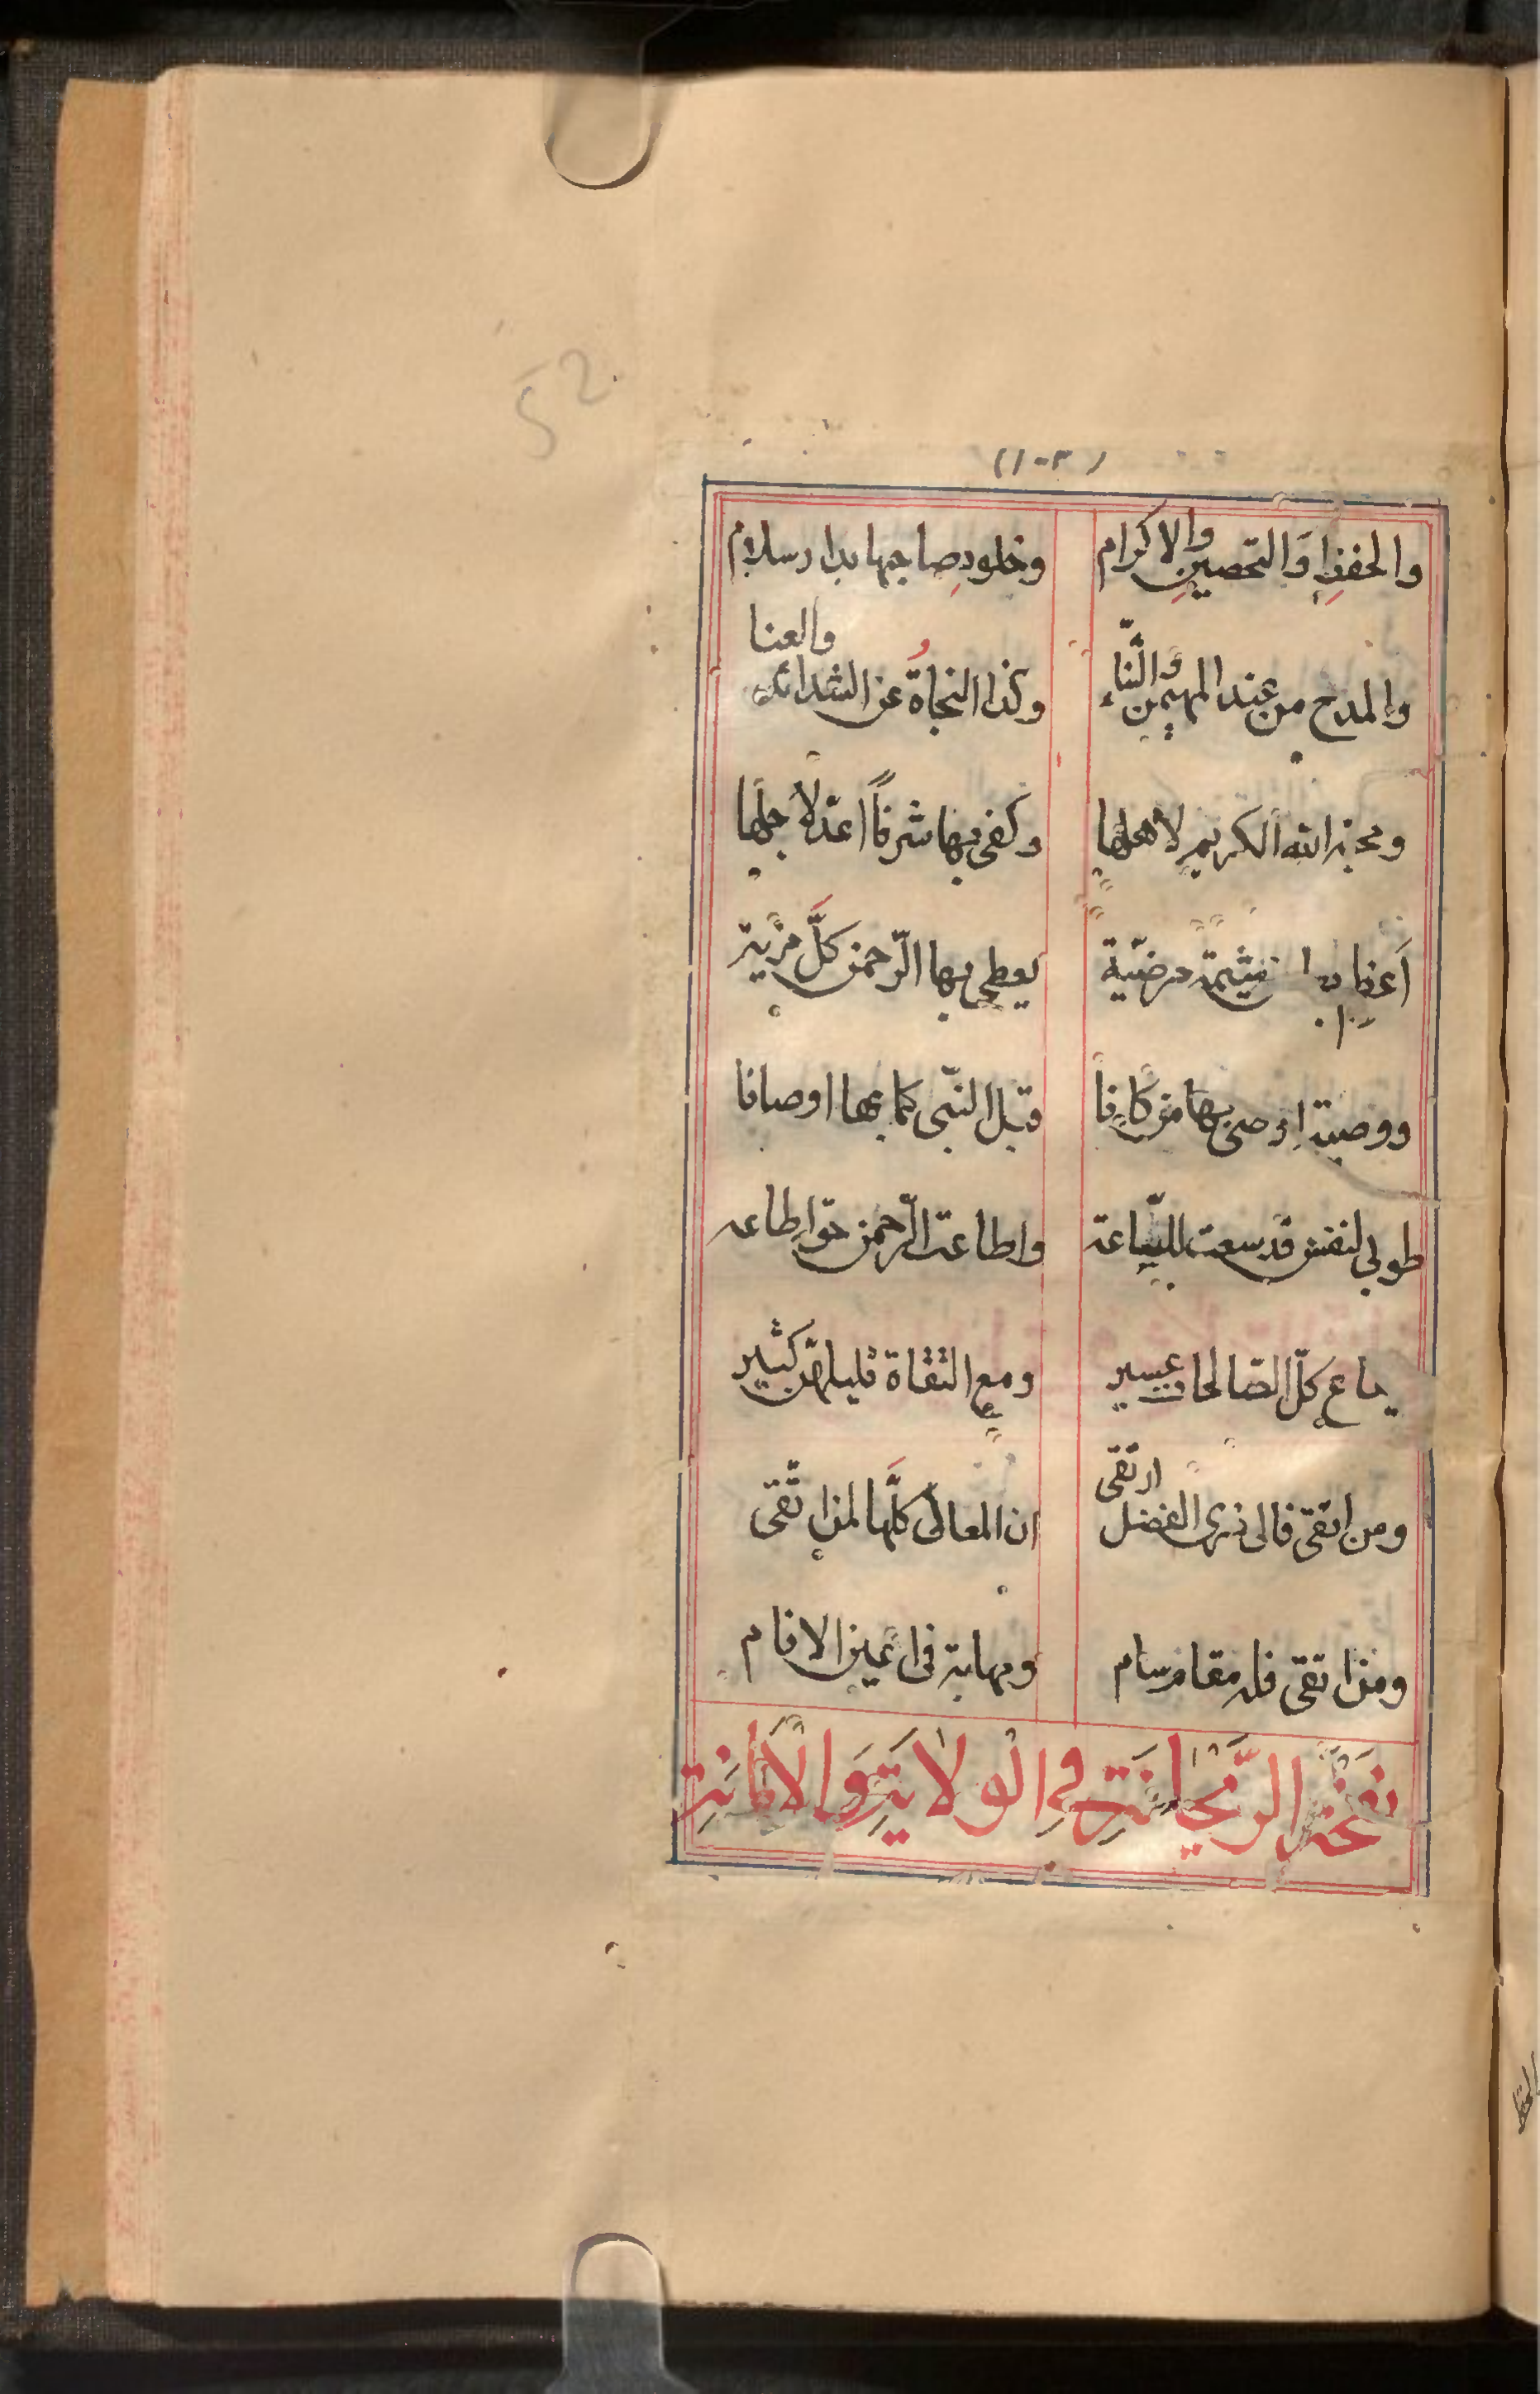 52
(١٠٣)
والحفظِ وَالتحصينِ والاكرام وخلودِ صاحبها بدار سلام
والمدح من عند المهيمن والثَّناء وكذا النجاةُ عن الشدائد والعنا
ومحبة الله الكريم لاهلها وكفى بها شرفاً اعدّ لاجلها
أعظم بها من شيمة مرضيّة يعطى بها الرّحمن كلَّ مزية
ووصية اوصى بها من كانا قبل النبّى كما بها اوصانا
طوبى لنفس قد سعت للطّاعة واطاعت الرّحمن حق اطاعه
كلّ الصّالحات يسير ومع التقاة قليلهنّ كثير
ومن اتقى فالى ذرى الفضل ارتقى ان المعالى كلَّها لمن اتّقى
ومن اتقى فله مقام سام ومهابة فى اعين الانام
نفحَة الرَّيحانَةِ فِي الولايَةِ وَالأمانَةِ